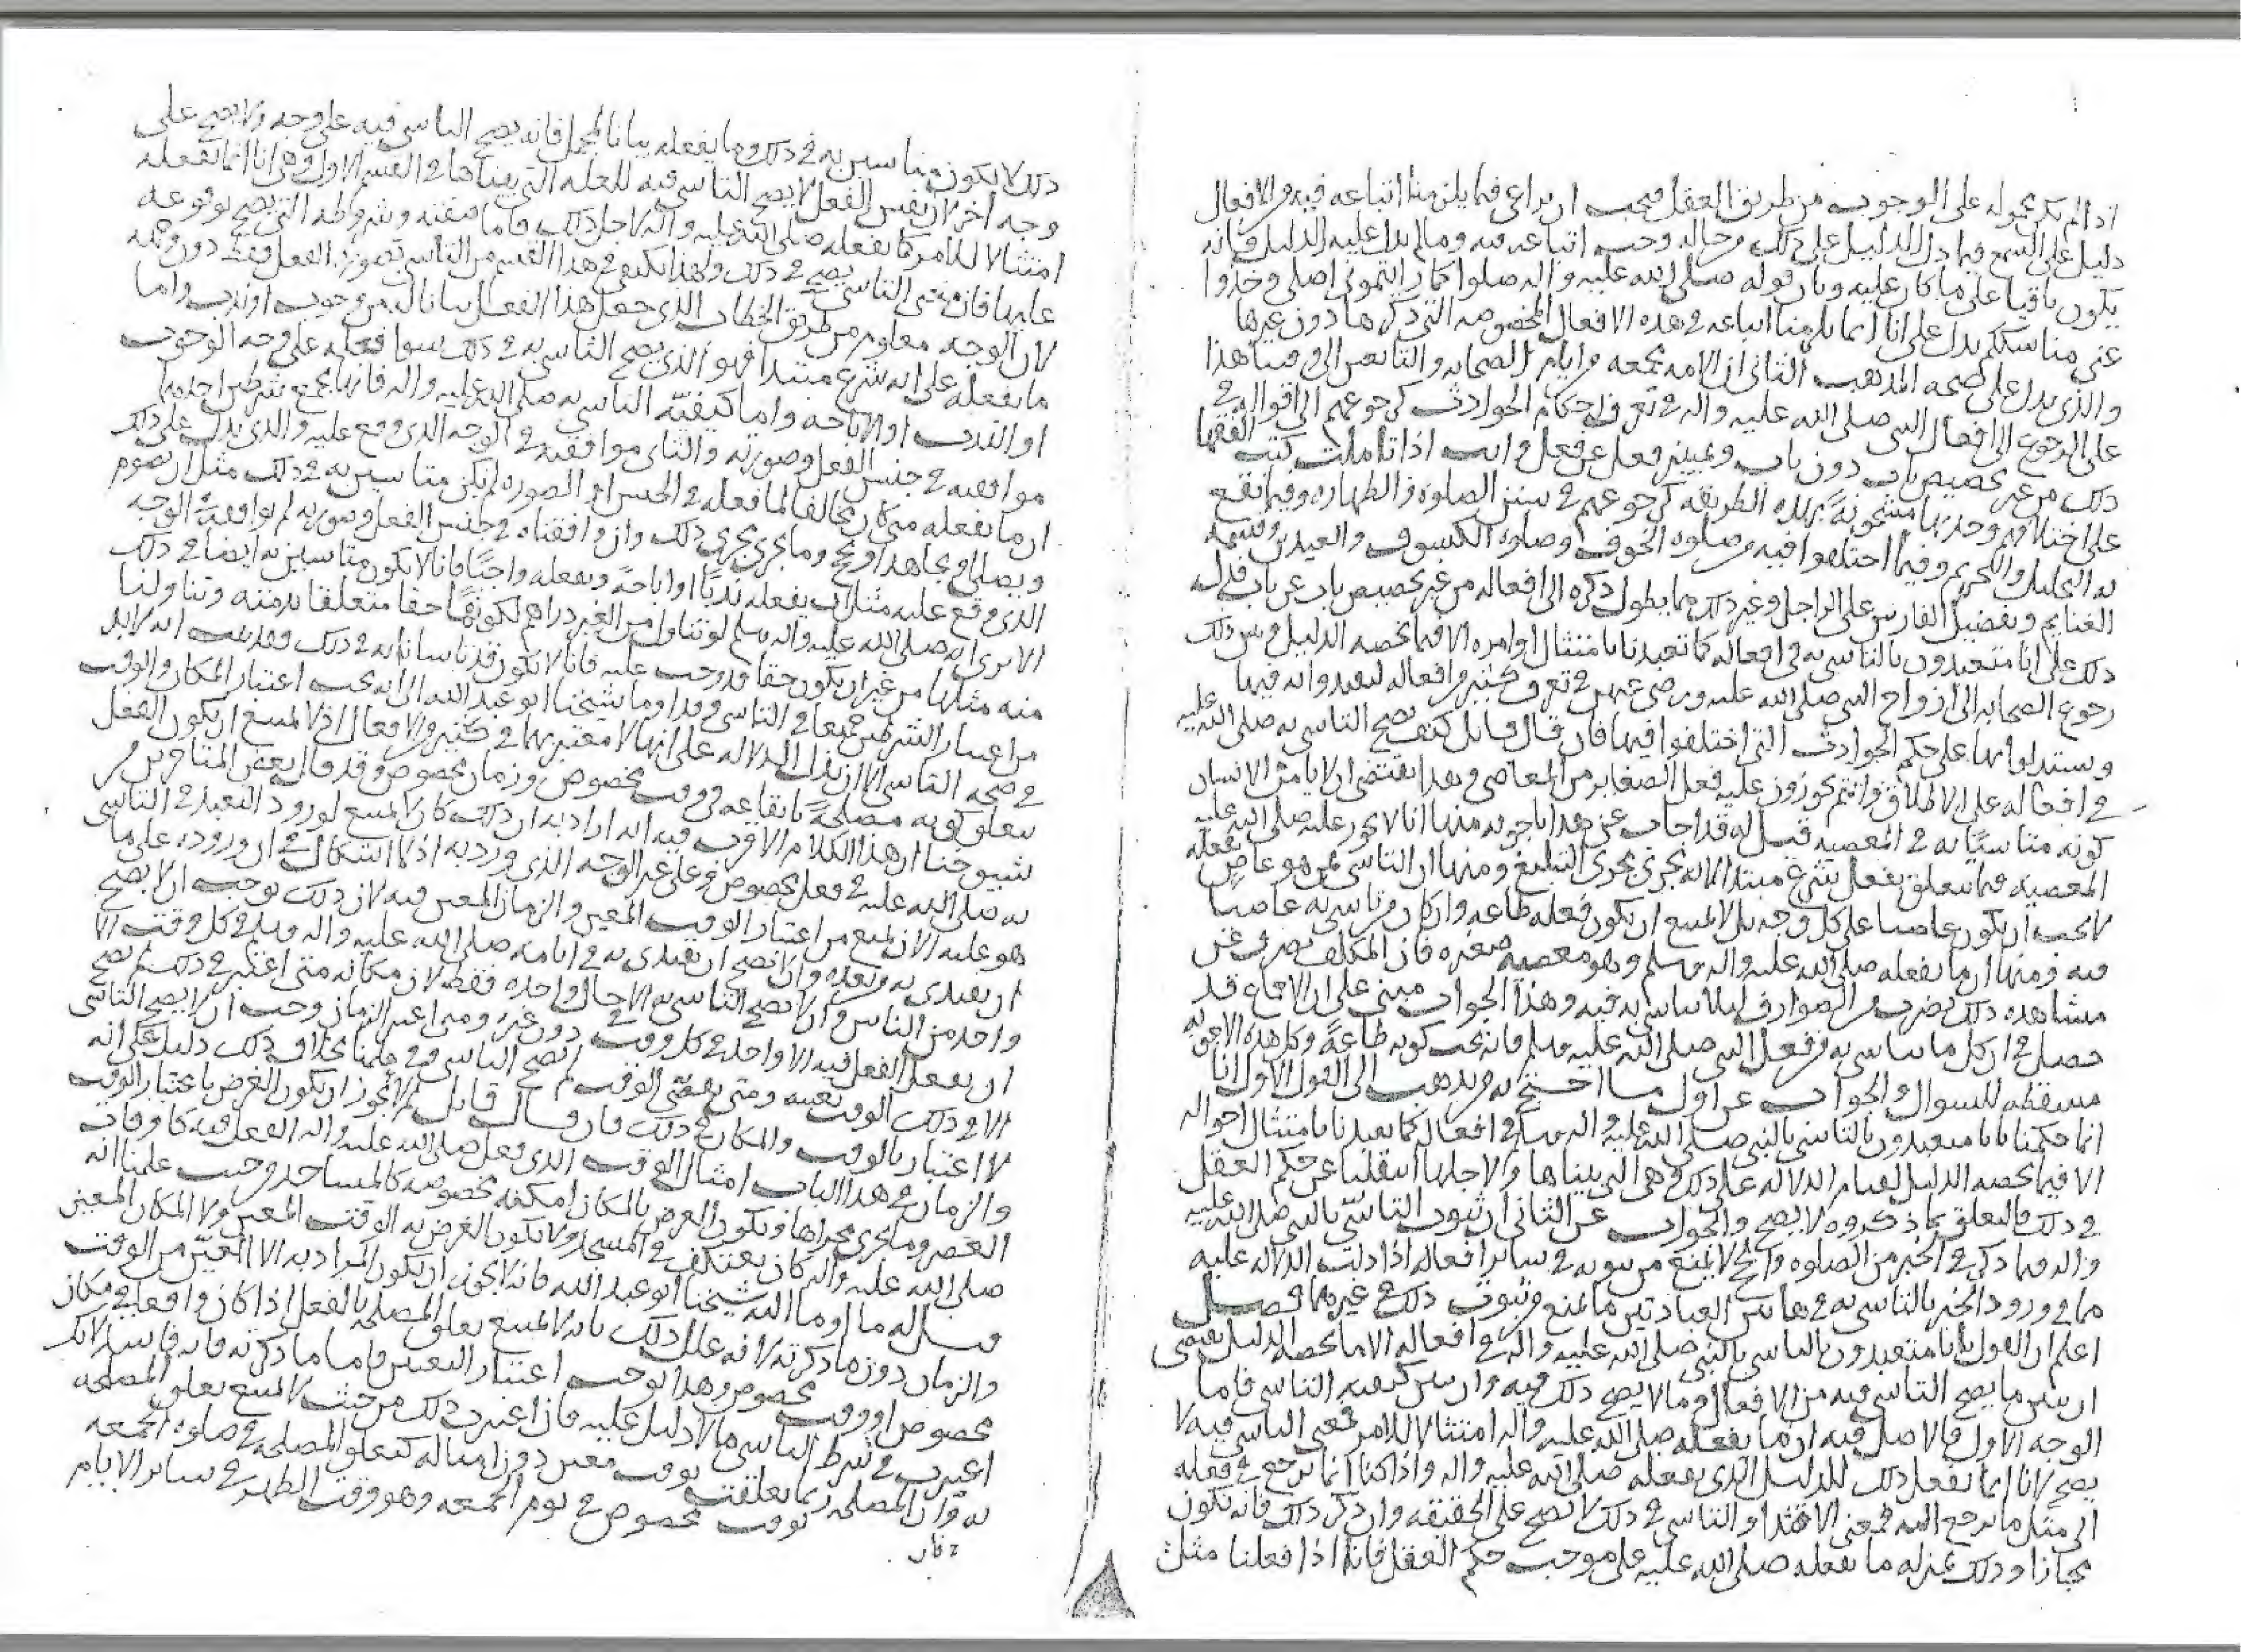 اذا لم نكن محموله على الوجوب من طريق العقل فيجب ان يراعى فيما يلزمنا اتباعه فيه من الافعال
دليل على السمع فيما دل الدليل على ذلك من حاله وجب اتباعه فيه وما لم يدل عليه الدليل فانه
يكون باقيا على ما كان عليه وبان قوله صلى الله عليه واله صلوا كما رايتموني اصلي وخذوا
عني مناسككم يدل على انا انما يلزمنا اتباعه في هذه الافعال المخصوصه التي ذكرها دون غيرها
والذي يدل على صحه المذهب الثاني ان الامه مجمعه من ايام الصحابه والتابعين الى يومنا هذا
على الرجوع الى افعال النبي صلى الله عليه واله في تعرف احكام الحوادث كرجوعهم الى اقواله في
ذلك من غير تخصيص باب دون باب وتمييز فعل عن فعل وانت اذا تاملت كتب الفقها
على اختلافهم وجدتها مشحونةً بهذه الطريقه كرجوعهم في سنن الصلوه والطهاره وفيما تقع
به التحليل والتحريم وفيما اختلفوا فيه من صلوه الخوف وصلوه الكسوف والعيدين وقسمه
الغنايم وتفضيل الفارس على الراجل وغير ذلك مما يطول ذكره الى افعاله من غير تخصيص باب عن باب فدل
ذلك على انا متعبدون بالتاسي به في افعاله كما تعبدنا بامتثال اوامره الا فيما يخصه الدليل ومن ذلك
رجوع الصحابه الى ازواج النبي صلى الله عليه ورضي عنهن في تعرف كثير من افعاله ليقتدوا به فيها
ويستدلوا بها على حكم الحوادث التي اختلفوا فيها فان قال قايل كيف يصح التاسي به صلى الله عليه
في افعاله على الاطلاق وانتم تجوزون عليه فعل الصغاير من المعاصي وهذا يقتضي ان لا يامن الانسان
كونه متاسيًا به في المعصيه قيل له قد اجاب عن هذا باجوبه منها انا لا نجوز عليه صلى الله عليه
المعصيه فيما يتعلق بفعل شرع مبتدا لانه يجري مجرى التبليغ ومنها ان التاسي بمن هو عاصٍ بفعله
لا يجب ان يكون عاصيا على كل وجه بل لا يمتنع ان يكون فعله طاعه وان كان من تاسي به عاصيا
فيه ومنها ان ما يفعله صلى الله عليه واله وسلم وهو معصيه صغيره فان المكلف يصرف عن
مشاهده ذلك بضرب من الصوارف ليلا يتاسى به فيه وهذا الجواب مبني على ان الاجماع قد
حصل في ان كل ما يتاسى به من فعل النبي صلى الله عليه وسلم فانه يجب كونه طاعةً وكل هذه الاجوبه
مسقطه للسوال والجواب عن اول ما احتج به من يذهب الى القول الاول انا
انما حكمنا بانا متعبدون بالتاسي بالنبي صلى الله عليه واله وسلم في افعاله كما تعبدنا بامتثال احواله
الا فيما يخصه الدليل لقيام الدلاله على ذلك وهي التي بيناها ولاجلها انتقلنا عن حكم العقل
في ذلك فالتعلق بما ذكروه لا يصح والجواب عن الثاني ان ثبوت التاسّي بالنبي صلى الله عليه
واله فيما ذكر في الخبر من الصلوه والحج لا يمنع من ثبوته في سائر افعاله اذا دلت الدلاله عليه
فما في ورود الخبر بالتاسي به في هاتين العبادتين ما يمنع من ثبوت ذلك في غيرهما فصل
اعلم ان القول بانا متعبدون بالتاسي بالنبي صلى الله عليه واله في افعاله الا ما يخصه الدليل يقتضي
ان نبين ما يصح التاسي فيه من الافعال وما لا يصح ذلك فيه وان نبين كيفيه التاسي فاما
الوجه الاول فالاصل فيه ان ما يفعله صلى الله عليه واله امتثالا للامر فمعنى التاسي فيه لا
يصح لانا انما نفعل ذلك للدليل الذي يفعله صلى الله عليه واله واذا كنا انما نرجع في فعله
الى مثل ما يرجع اليه فمعنى الاقتدا والتاسي في ذلك لا تصح على الحقيقه وان ذكر ذلك فانه يكون
مجازا وذلك بمنزله ما يفعله صلى الله عليه على موجب حكم العقل فانا اذا فعلنا مثل
ذلك لا يكون متاسين به في ذلك وما يفعله بيانا لمجمل فانه يصح التاسي فيه على وجه ولا يصح على
وجه اخر لان نفس الفعل لا يصح التاسي فيه للعله التي بيناها في القسم الاول وهي انا انما نفعله
امتثالا للامر كما يفعله صلى الله عليه واله لاجل ذلك فاما صفته وشروطه التي يصح وقوعه
عليها فان معنى التاسي يصح في ذلك ولهذا يكفي في هذا القسم من التاسي بصوره الفعل فقط دون وجهه
لان الوجه معلوم من طريق الخطاب الذي جعل هذا الفعل بيانا له من وجوب او ندب واما
ما يفعله على انه شرع مبتدا فهو الذي يصح التاسي به في ذلك سوا فعله على وجه الوجوب
او الندب او الاباحه واما كيفيّه التاسي به صلى الله عليه واله فانها بجميع شرطين احدهما
موافقته في جنس الفعل وصورته والثاني موافقته في الوجه الذي وقع عليه والذي يدل على ذلك
ان ما نفعله متى كان مخالفا لما فعله في الجنس او الصوره لم نكن متاسين به في ذلك مثل ان يصوم
ويصلي او يجاهد او يحج وما يجري مجرى ذلك وان وافقناه في جنس الفعل وصورته لم نوافقه في الوجه
الذي وقع عليه مثل ان يفعله ندبًا او اباحةً ونفعله واجبًا فانا لا نكون متاسين به ايضا في ذلك
الا ترى انه صلى الله عليه واله وسلم لو تناول من الغير دراهم لكونها حقا متعلقا بذمته وتناولنا
منه مثلها من غير ان يكون حقا قد وجب عليه فانا لا نكون قد تاسينا به في ذلك وقد ثبت انه لا بد
من اعتبار الشرطين جميعا في التاسي وقد اومأ شيخنا ابو عبد الله الى انه يجب اعتبار المكان والوقت
في صحه التاسي الا ان تدل الدلاله على انهما لا معتبر بهما في كثير من الافعال اذ لا يمتنع ان يكون الفعل
يتعلق كونه مصلحةً بايقاعه في وقت مخصوص وزمان مخصوص وقد قال بعض المتاخرين من
شيوخنا ان هذا الكلام الاقرب فيه انه اراد به ان ذلك كان لا يمتنع لورود التعبد في التاسي
به صلى الله عليه في فعل مخصوص وعلى غير الوجه الذي ورد به اذ لا اشكال في ان وروده على ما
هو عليه الان يمنع من اعتبار الوقت المعين والزمان المعين فيه لان ذلك يوجب ان لا يصح
ان يقتدى به بعده وان لا يصح ان يقتدى به في ايامه صلى الله عليه واله وسلم في كل وقت الا
واحد من الناس وان لا يصح التاسي به الا حال واحده فقط لان مكانه متى اعتبر في ذلك لم يصح
ان يفعل الفعل فيه الا واحد في كل وقت دون غيره ومتى اعتبر الزمان وجب ان لا يصح التاسي
الا في ذلك الوقت بعينه ومتى يقضّى الوقت لم يصح التاسي وفي علمنا بخلاف ذلك دليل على انه
لا اعتبار بالوقت والمكان في ذلك فان قال قائل لم لا يجوز ان يكون الغرض باعتبار الوقت
والزمان في هذا الباب امثال الوقت الذي فعل صلى الله عليه واله الفعل فيه كاوقات
العصر وما يجري مجراها ويكون الغرض بالمكان امكنه مخصوصه كالمساجد وحيث علمنا انه
صلى الله عليه واله كان يعتكف في المسجد ولا يكون الغرض به الوقت المعين ولا المكان المعين
قيل له ما اومأ اليه شيخنا ابو عبد الله فانه لا يجوز ان يكون المراد به الا المعيّن من الوقت
والزمان دون ما ذكرته لانه علل ذلك بانه لا يمتنع تعلق المصلحه بالفعل اذا كان واقعا في مكان
مخصوص او وقت مخصوص وهذا يوجب اعتبار التعين فاما ما ذكرته فانه فاسد لانك
اعتبرت في شرط التاسي ما لا دليل عليه فان اعتبرت ذلك من حيث لا يمتنع تعلق المصلحه
به وان المصلحه ربما تعلقت بوقت معين دون امثاله كتعلق المصلحه في صلوه الجمعه
بوقت مخصوص في يوم الجمعه وهو وقت الظهر في سائر الايام
فان